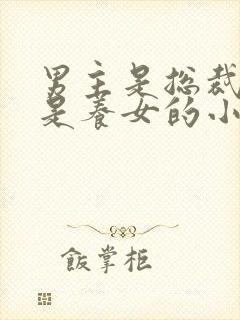 男主是总裁
是养女的小
飯掌柜